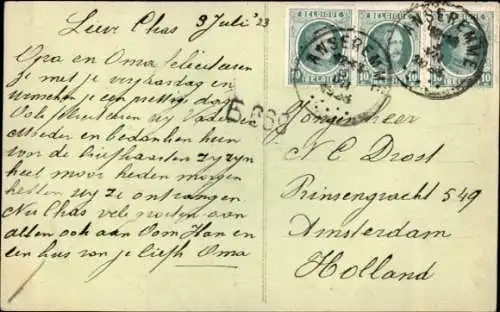 Lieve Chas 3 Juli '23
Opa en Oma feliciteeren
je met je verjaardag en
wenschen je een prettige dag
Ook feliciteeren wij Vader en
Moeder en bedanken hun
voor de briefkaarten zij zyn
heel mooi heden morgen
hebben wij ze ontvangen
Nu Chas vele groeten aan
allen ook aan Oom Han en
een kus van je liefh Oma
BELGIQUE BELGIQUE
10 BELGIE 10 10 10 10
ANSEREMME
ANSEREMME
Jongenheer
N C Drost
Prinsengracht 549
Amsterdam
Holland